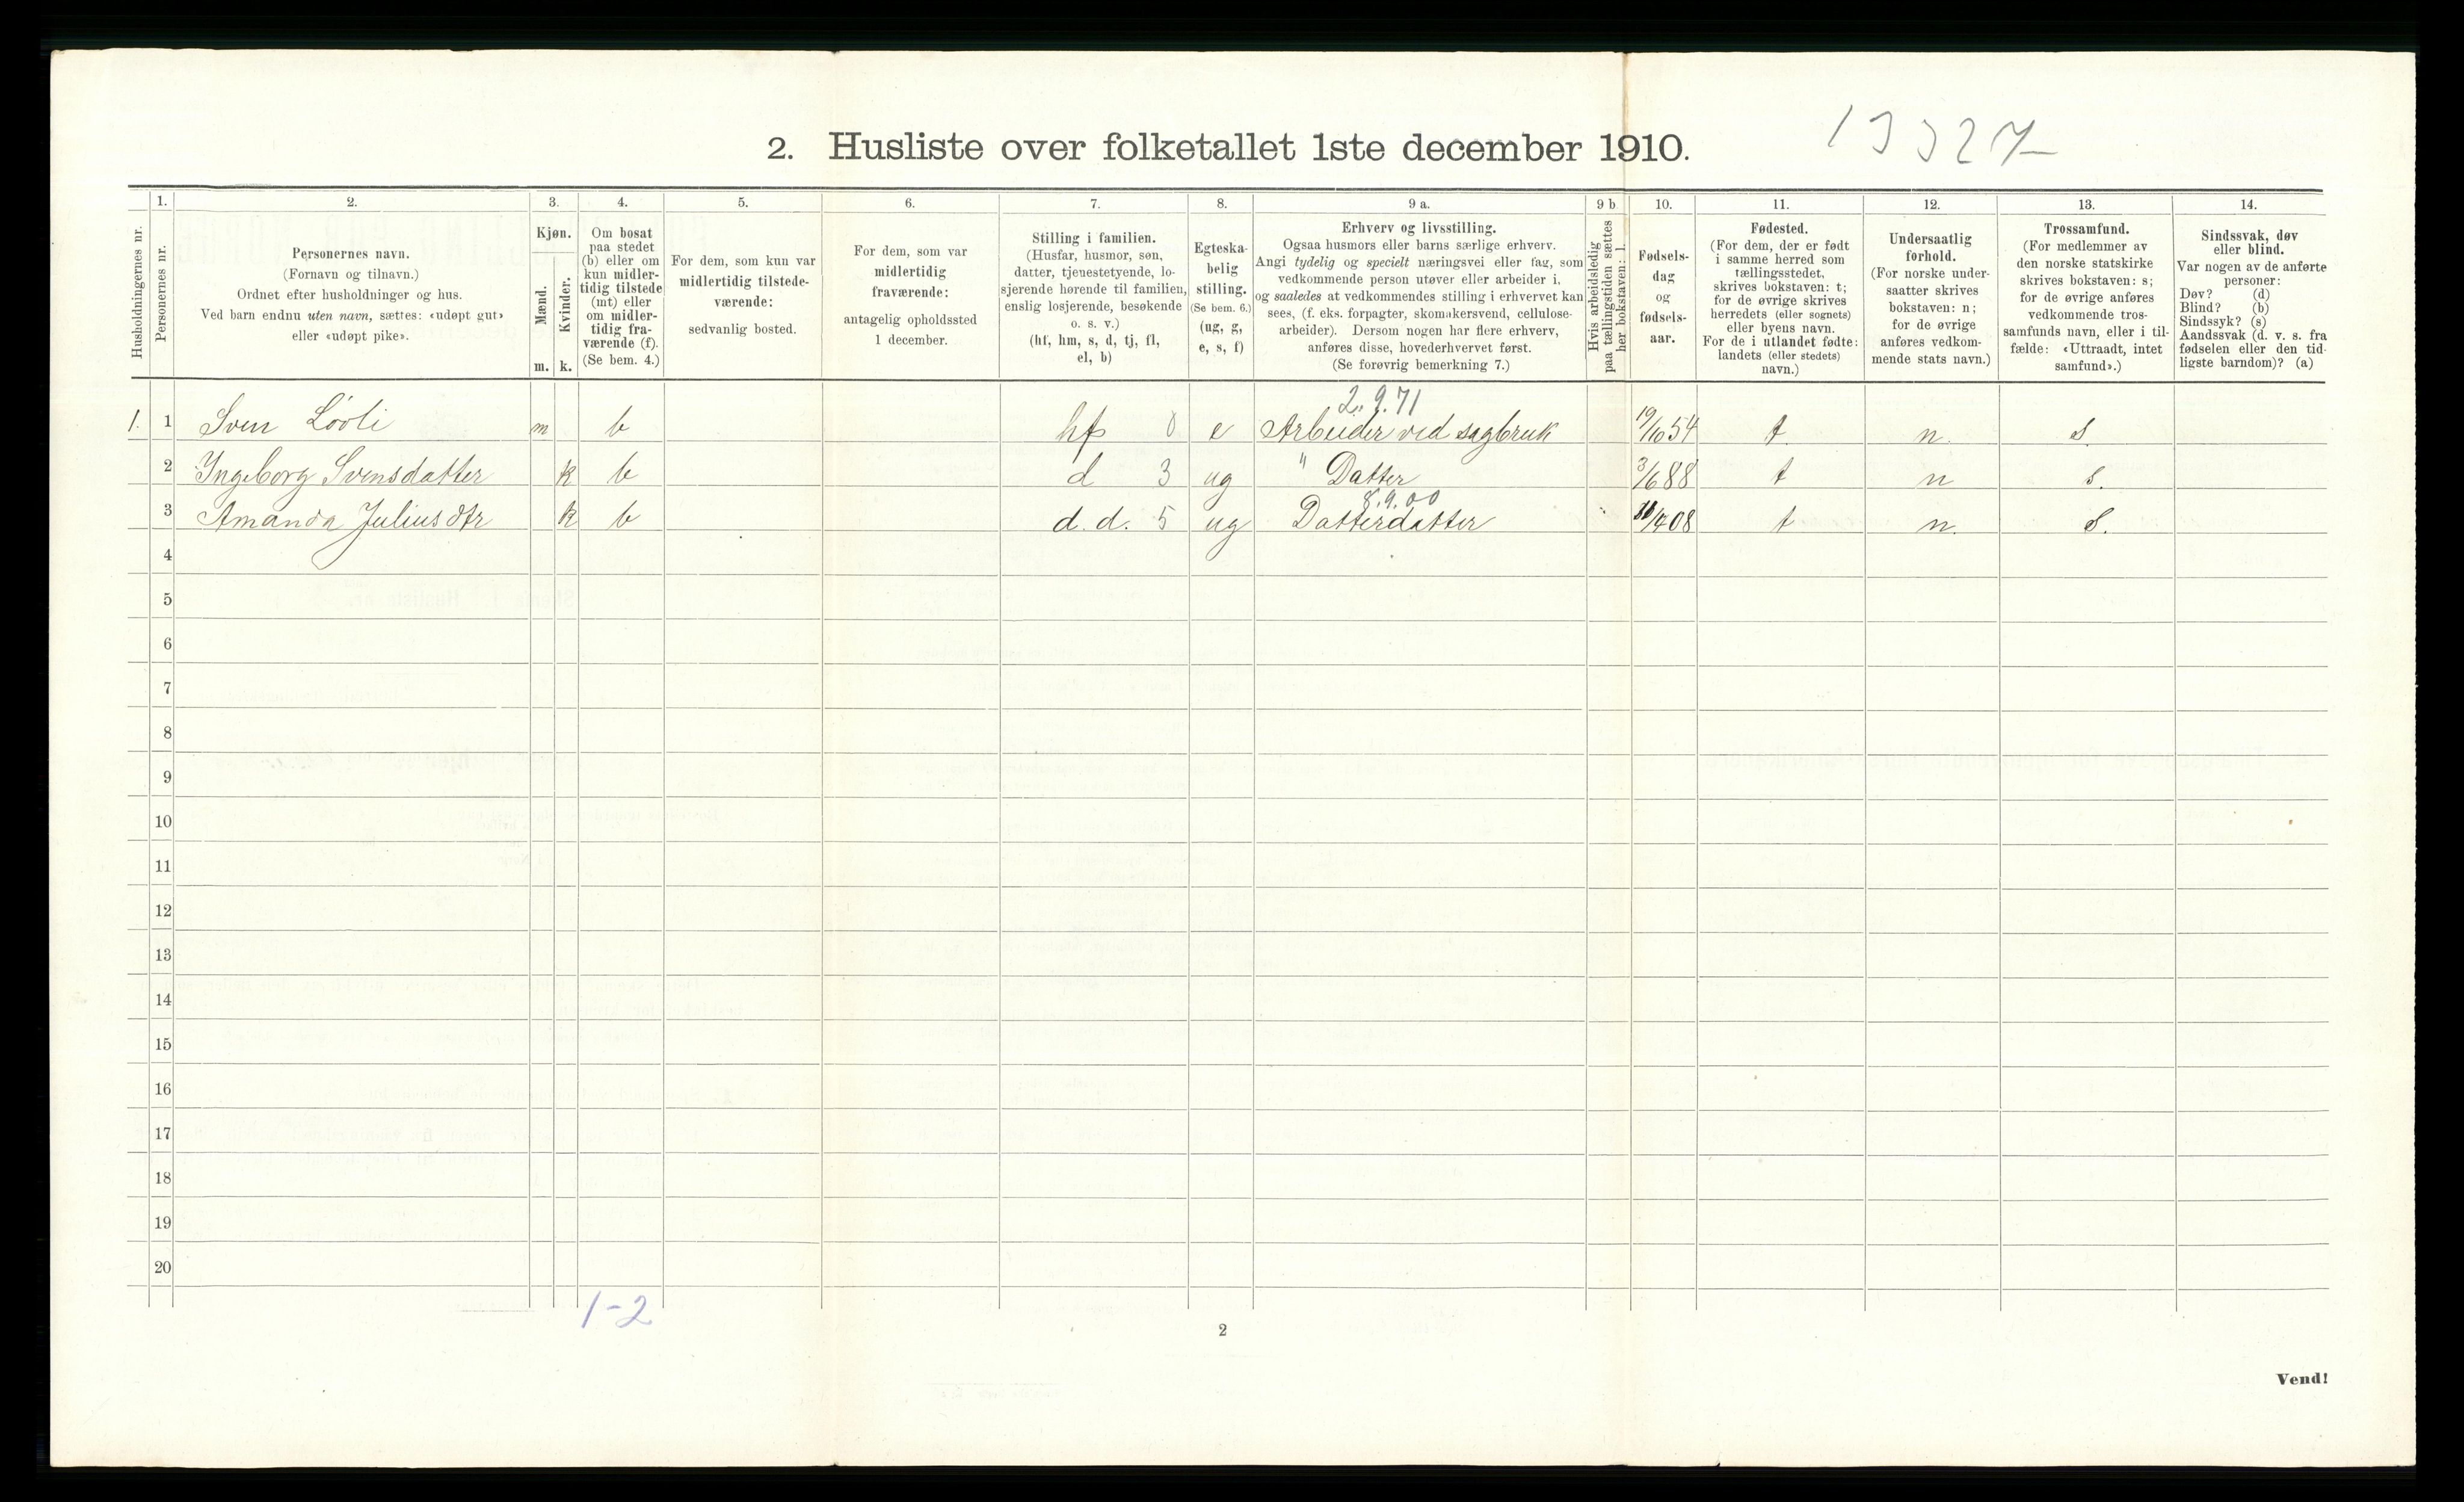 13327
2. Husliste over folketallet 1ste december 1910.
Husholdningernes nr.
1.
Personernes nr.
2.
Personernes navn.
(Fornavn og tilnavn.)
Ordnet efter husholdninger og hus.
Ved barn endnu uten navn, sættes: «udøpt gut»
eller «udøpt pike».
3.
Kjøn.
Mænd.
Kvinder.
m. k.
4.
Om bosat
paa stedet
(b) eller om
kun midler-
tidig tilstede
(mt) eller
om midler-
tidig fra-
værende (f).
(Se bem. 4.)
5.
For dem, som kun var
midlertidig tilstede-
værende:
sedvanlig bosted.
6.
For dem, som var
midlertidig
fraværende:
antagelig opholdssted
1 december.
7.
Stilling i familien.
(Husfar, husmor, søn,
datter, tjenestetyende, lo-
sjerende hørende til familien,
enslig losjerende, besøkende
o. s. v.)
(hf, hm, s, d, tj, fl,
el, b)
8.
Egteska-
belig
stilling.
(Se bem. 6.)
(ug, g,
e, s, f)
9 a.
Erhverv og livsstilling.
Ogsaa husmors eller barns særlige erhverv.
Angi tydelig og specielt næringsvei eller fag, som
vedkommende person utøver eller arbeider i,
og saaledes at vedkommendes stilling i erhvervet kan
sees, (f. eks. forpagter, skomakersvend, cellulose-
arbeider). Dersom nogen har flere erhverv,
anføres disse, hovederhvervet først.
(Se forøvrig bemerkning 7.)
9 b
Hvis arbeidsledig
paa tællingstiden sættes
her bokstaven: l.
10.
Fødsels-
dag
og
fødsels-
aar.
11.
Fødested.
(For dem, der er født
i samme herred som
tællingsstedet,
skrives bokstaven: t;
for de øvrige skrives
herredets (eller sognets)
eller byens navn.
For de i utlandet fødte:
landets (eller stedets)
navn.)
12.
Undersaatlig
forhold.
(For norske under-
saatter skrives
bokstaven: n;
for de øvrige
anføres vedkom-
mende stats navn.)
13.
Trossamfund.
(For medlemmer av
den norske statskirke
skrives bokstaven: s;
for de øvrige anføres
vedkommende tros-
samfunds navn, eller i til-
fælde: «Uttraadt, intet
samfund».)
14.
Sindssvak, døv
eller blind.
Var nogen av de anførte
personer:
Døv? (d)
Blind? (b)
Sindssyk? (s)
Aandssvak (d. v. s. fra
fødselen eller den tid-
ligste barndom)? (a)
2.9.71
1. 1 Sven Lövli m b hf 0 e Arbeider ved sagbruk 19/10 54 t. n. s.
2 Ingeborg Svensdatter k b d 3 ug " Datter 3/6 88 t n s.
8.9.00
3 Amanda Julius dtr k b d. d. 5 ug Datterdatter /4 08 t n. s.
4
5
6
7
8
9
10
11
12
13
14
15
16
17
18
19
20
1-2
2
Vend!